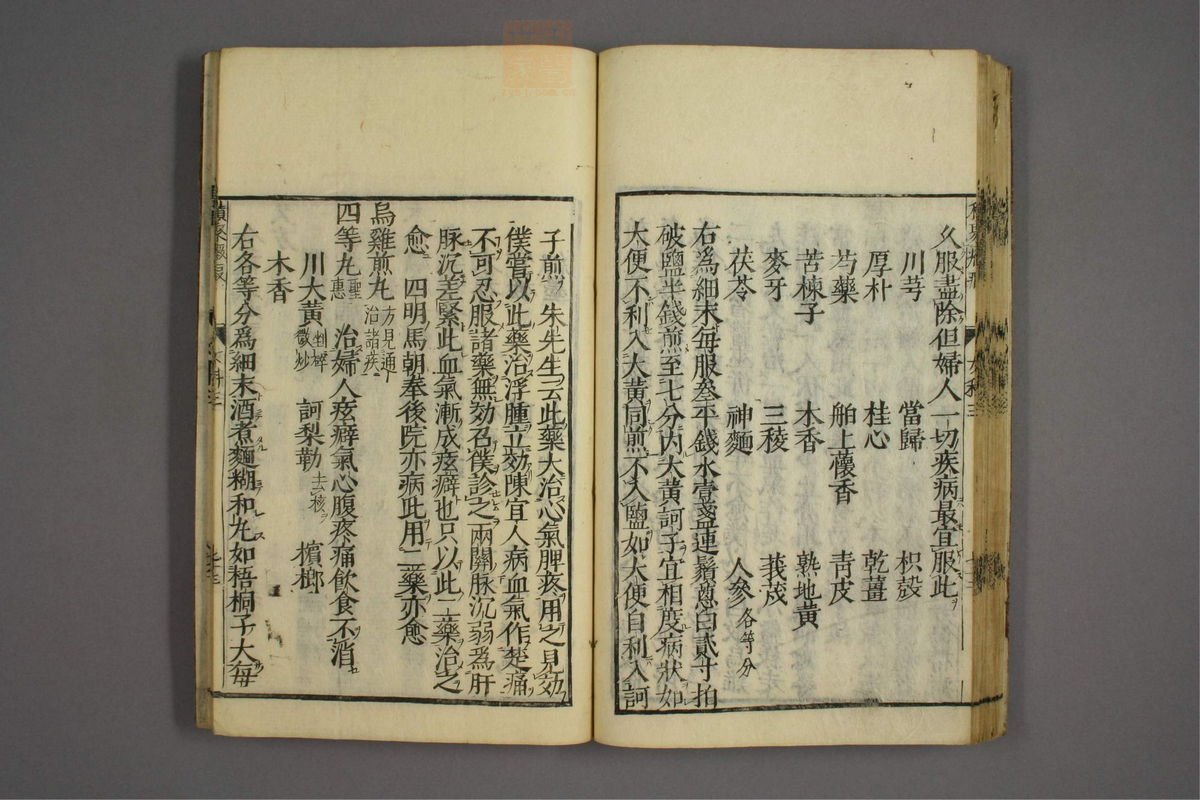 久服盡除但婦人一切疾病最宜服此
川芎 當歸 枳殼
厚朴 桂心 乾薑
芍藥 舶上蘹香 青皮
苦楝子 木香 熟地黃
麥牙 三稜 莪茂
茯苓 神麯 人參各等分
右爲細末每服叄平錢水壹盞連鬚蔥白貳寸拍
破鹽半錢煎至七分內大黃訶子宜相度病狀如
大便不利入大黃同煎不入鹽如大便自利入訶
子煎 朱先生云此藥大治心氣脾疼用之見効
僕嘗以此藥治浮腫立効陳宜人病血氣作楚痛
不可忍服諸藥無効召僕診之兩關脉沉弱爲肝
脉沉差緊此血氣漸成痃癖也只以此二藥治之
愈 四明馬朝奉後院亦病此用二藥亦愈
烏雞煎丸方見通治諸疾
四等丸聖惠 治婦人痃癖氣心腹疼痛飲食不消
川大黃剉碎微炒 訶梨勒去核 檳榔
木香
右各等分爲細末酒煮麵糊和丸如梧桐子大每